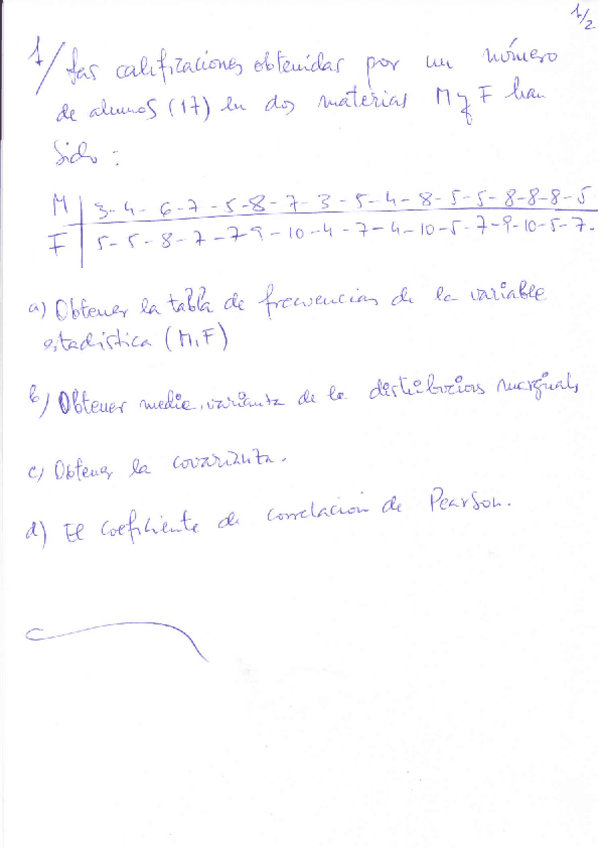 1/2
1/ Las calificaciones obtenidas por un número
de alumnos (17) en dos materias M y F han
sido:
M | 3-4-6-7-5-8-7-3-5-4-8-5-5-8-8-8-5
F | 5-5-8-7-7 9-10-4-7-4-10-5-7-9-10-5-7-
a) Obtener la tabla de frecuencias de la variable
estadística (M,F)
b) Obtener media, varianza de la distribucions marginals
c) Obtener la covarianza.
d) El coeficiente de correlación de Pearson.